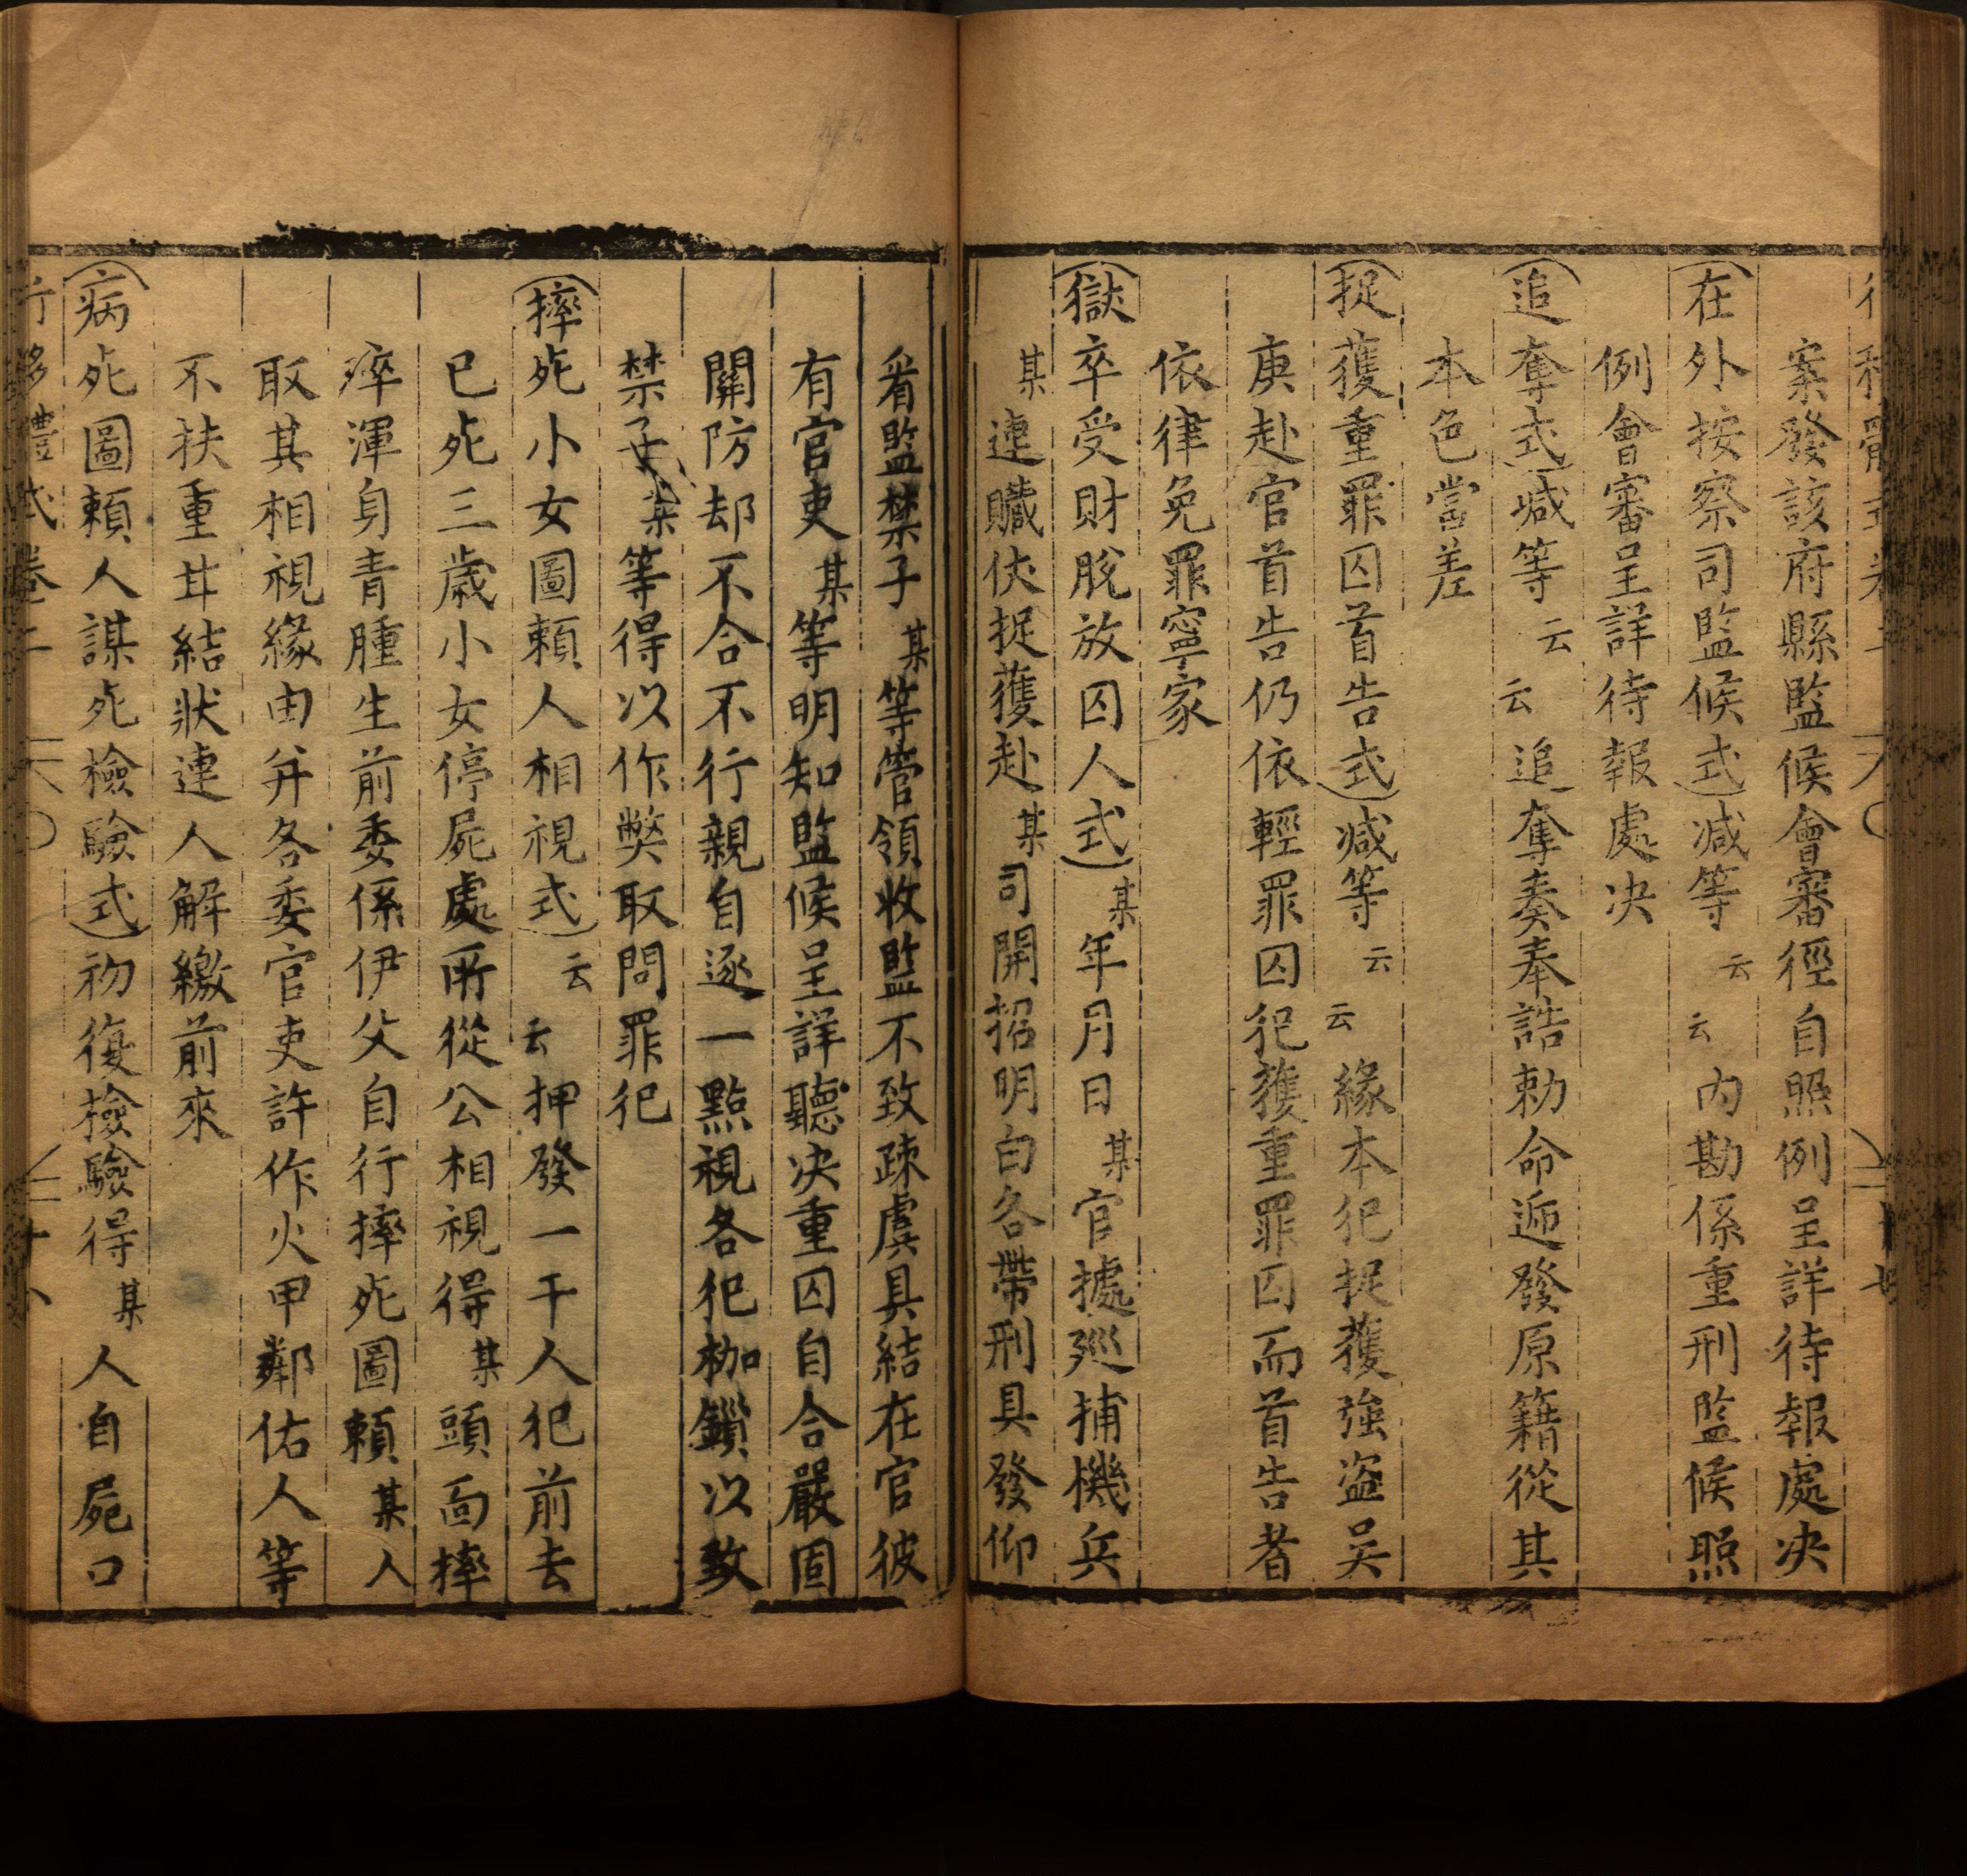 案發該府縣監候會審徑自照例呈詳待報處决
在外按察司監候式减等云云內勘係重刑監候照
例會審呈詳待報處决
追奪式减等云云追奪奏奉誥勅命遞發原籍從其
本色當差
捉獲重罪囚首告式减等云云緣本犯捉獲強盜吴
庚赴官首告仍依輕罪囚犯獲重罪囚而首告者
依律免罪寧家
獄卒受財脫放囚人式某年月日某官據巡捕機兵
某連贓伏捉獲赴某司開招明白各帶刑具發仰
看監禁子某等管領收監不致疎虞具結在官彼
有官吏某等明知監候呈詳聽决重囚自合嚴固
關防却不合不行親自逐一點視各犯枷鎖以致
禁子某等得以作獘取問罪犯
摔死小女圖賴人相視式云云押發一干人犯前去
已死三歲小女停屍處所從公相視得某頭面摔
瘁渾身青腫生前委係伊父自行摔死圖賴某人
取其相視緣由并各委官吏許作火甲鄰佑人等
不扶重甘結狀連人解繳前來
病死圖賴人謀死檢驗式初復檢驗得某人自屍口
行移體式卷二 十八